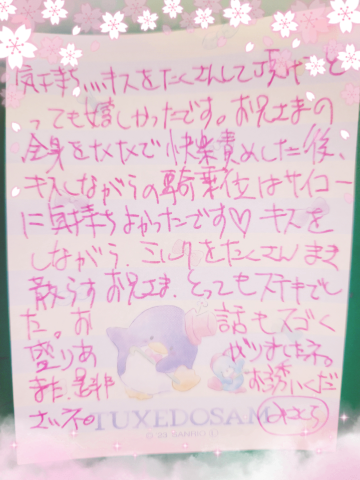 気持ちいいキスをたくさんして頂けと
っても嬉しかったです。お兄さまの
全身をなでなで快楽責めした後、
キスしながらの騎乗位はサイコー
に気持ちよかったです♡ キスを
しながら、ミルクをたくさんまき
散らすお兄さま、とってもステキでし
た。お話もスゴく
盛りあがりましたネ。
また是非お誘いくだ
さいネ。
TUXEDOSAM